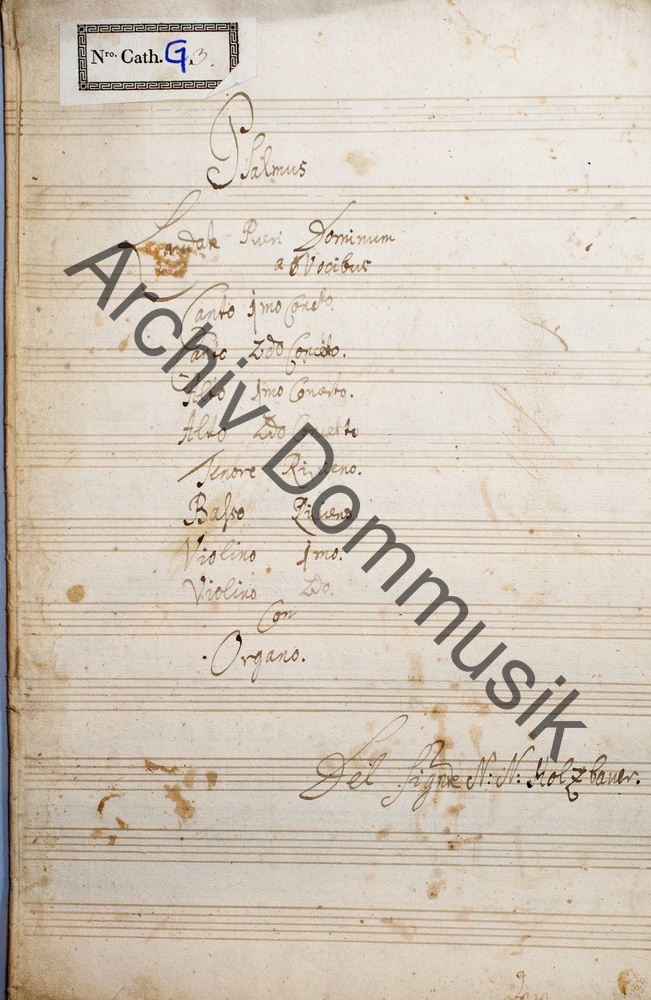 Nro. Cath. G. 3.
Psalmus
Laudate Pueri Dominum
a 6 Vocibus
Canto 1mo Concto.
Canto 2do Concto.
Alto 1mo Concerto.
Alto 2do Concerto
Tenore Ripieno.
Basso Ripieno
Violino 1mo.
Violino 2do.
Con
Organo.
Del Signore N: N: Holzbauer.
Archiv Dommusik